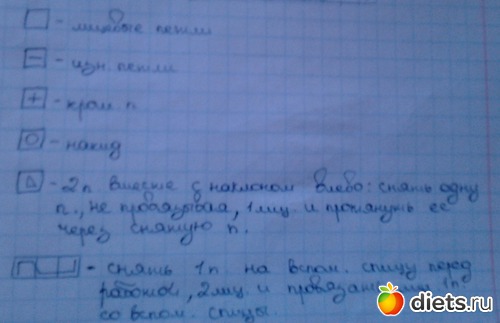 □ - лицевые петли
⊟ - изн. петли
+ - кром. п
О - накид
Δ - 2п вместе с наклоном влево: снять одну
п., не провязывая, 1 лиц. и протянуть её
через снятую п.
- снять 1п на вспом. спицу перед
работой, 2 лиц. и провязать 1п
со вспом. спицы.
diets.ru